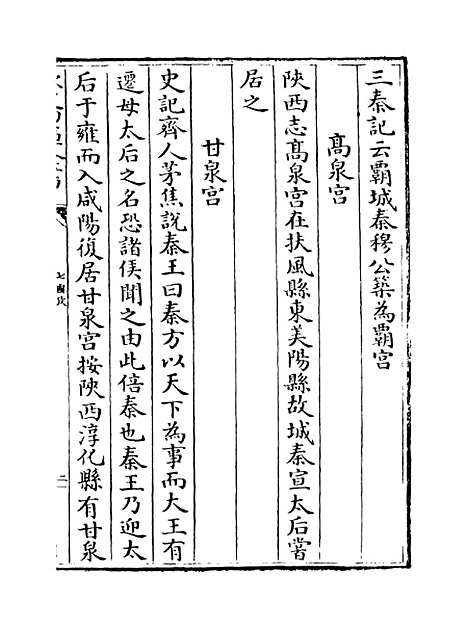 三秦記云霸城秦穆公築為霸宮
高泉宮
陜西志髙泉宮在扶風縣東美陽縣故城秦宣太后嘗
居之
甘泉宮
史記齊人茅焦説秦王曰秦方以天下為事而大王有
遷母太后之名恐諸侯聞之由此倍秦也秦王乃迎太
后于雍而入咸陽復居甘泉宮按陜西淳化縣有甘泉
七國攷